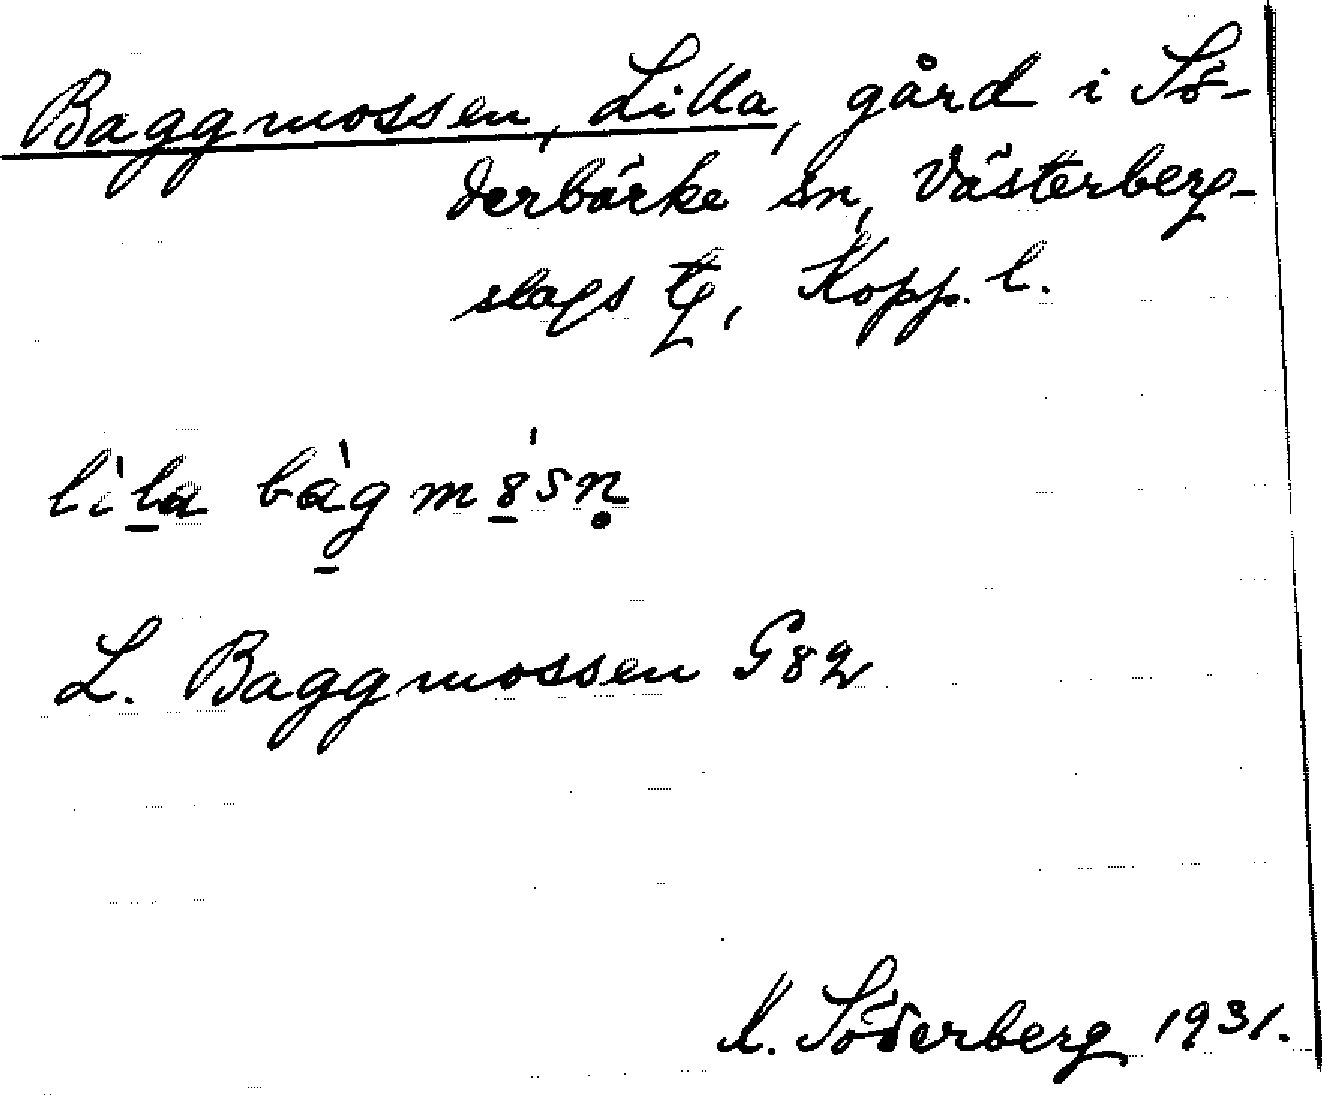 Baggmossen, Lilla, gård i Sö-
derbärke sn, Västerberg-
slags tg, Kopp. l.
lìla bàgm8́sn̥
L. Baggmossen G82
Söderberg 1931.